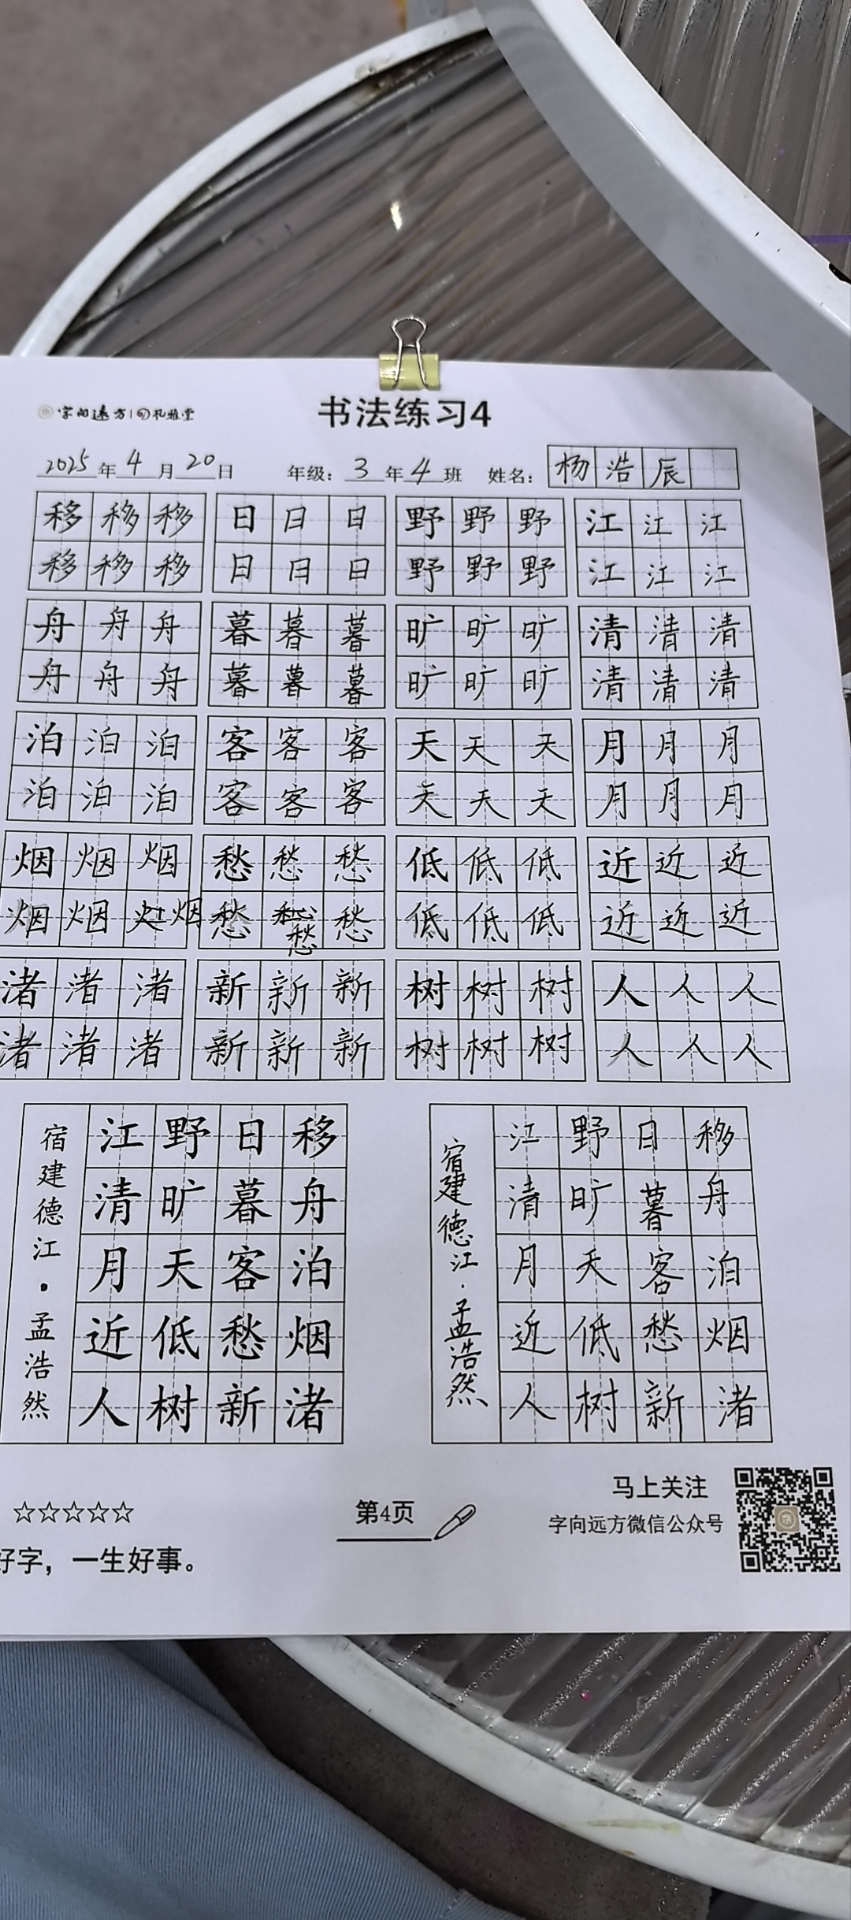 字向远方 札雅堂
书法练习4
2025年4月20日 年级：3年4班 姓名：杨浩辰
移移移 日日日 野野野 江江江
移移移 日日日 野野野 江江江
舟舟舟 暮暮暮 旷旷旷 清清清
舟舟舟 暮暮暮 旷旷旷 清清清
泊泊泊 客客客 天天天 月月月
泊泊泊 客客客 天天天 月月月
烟烟烟 愁愁愁 低低低 近近近
烟烟烟 愁愁愁 低低低 近近近
渚渚渚 新新新 树树树 人人人
渚渚渚 新新新 树树树 人人人
宿建德江·孟浩然
移舟泊烟渚
日暮客愁新
野旷天低树
江清月近人
宿建德江·孟浩然
移舟泊烟渚
日暮客愁新
野旷天低树
江清月近人
☆☆☆☆☆
好字，一生好事。
第4页
马上关注
字向远方微信公众号